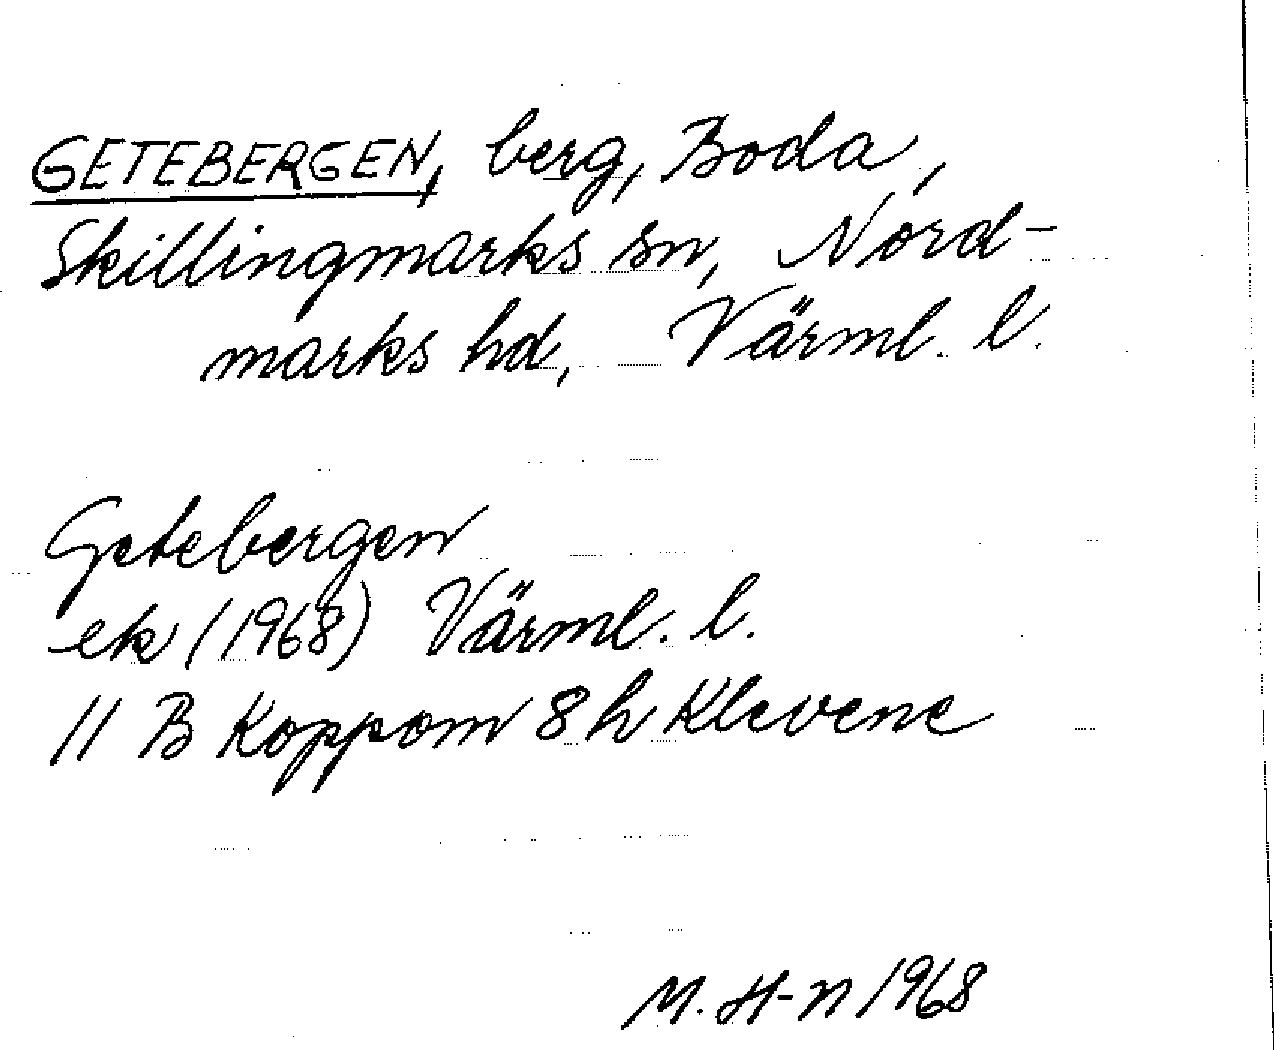 GETEBERGEN, berg, Boda,
Skillingmarks sn, Nord-
marks hd, Värml. l.
Getebergen
ek (1968) Värml. l.
11 B Koppom 8 h Klevene
M. H-n 1968